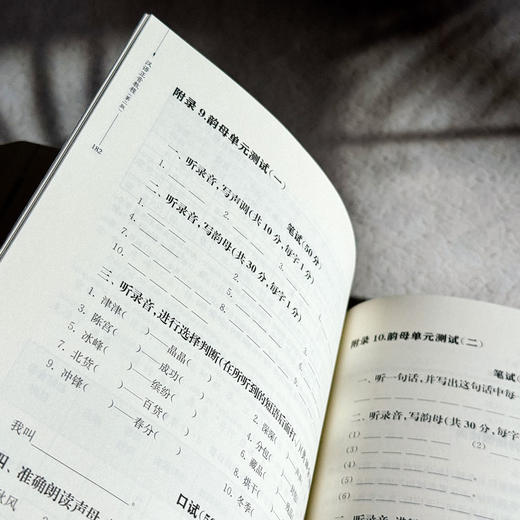 汉语正音教程(第二版)
182
附录 9.韵母单元测试(一)
笔试(50分)
一、听录音,写声调(共10分,每字1分)
1. 2. 3.
二、听录音,写韵母(共30分,每字1分)
1. 2. 3.
4. 5. 6.
7. 8. 9.
10.
三、听录音,进行选择判断(在所听到的短语后面打
1. 津津( )——晶晶( ) 2. 深深(
3. 陈宫( )——成功( ) 4. 分包(
5. 冰峰( )——缤纷( ) 6. 藏品(
7. 北货( )——百货( ) 8. 烘干(
9. 冲锋( )——春分( ) 10. 冬季(
口试(50
我叫
四、准确朗读声母
秋风
附录 10.韵母单元测试(二)
笔试(50
一、听一句话,并写出这句话中每一
二、听录音,写韵母(共30分,每字
(1) (2)
(3)
(4)
(5)
(6)